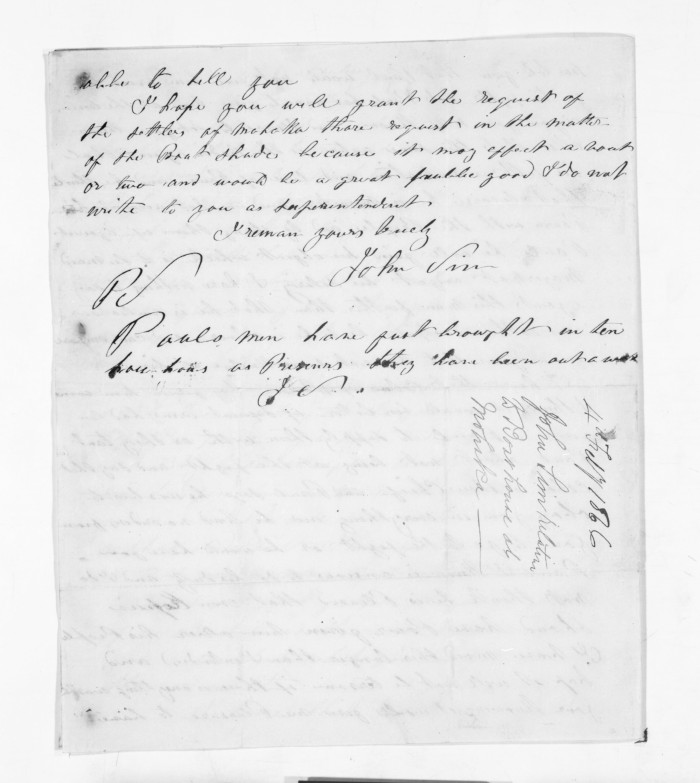 able to tell you
I hope you will grant the request of
the settlers of Mohaka there request in the matter
of the Boat Shades because it may effect a vout
or two and would be a great publik good I do not
write to you as superintendent
I reman yours truely
John Sim
PS
Paulo men have just brought in ten
hou hous as Prisners they have been out a week
J S.
4 Feby 1866
John Sim relative
to Boat house at
Mohaka